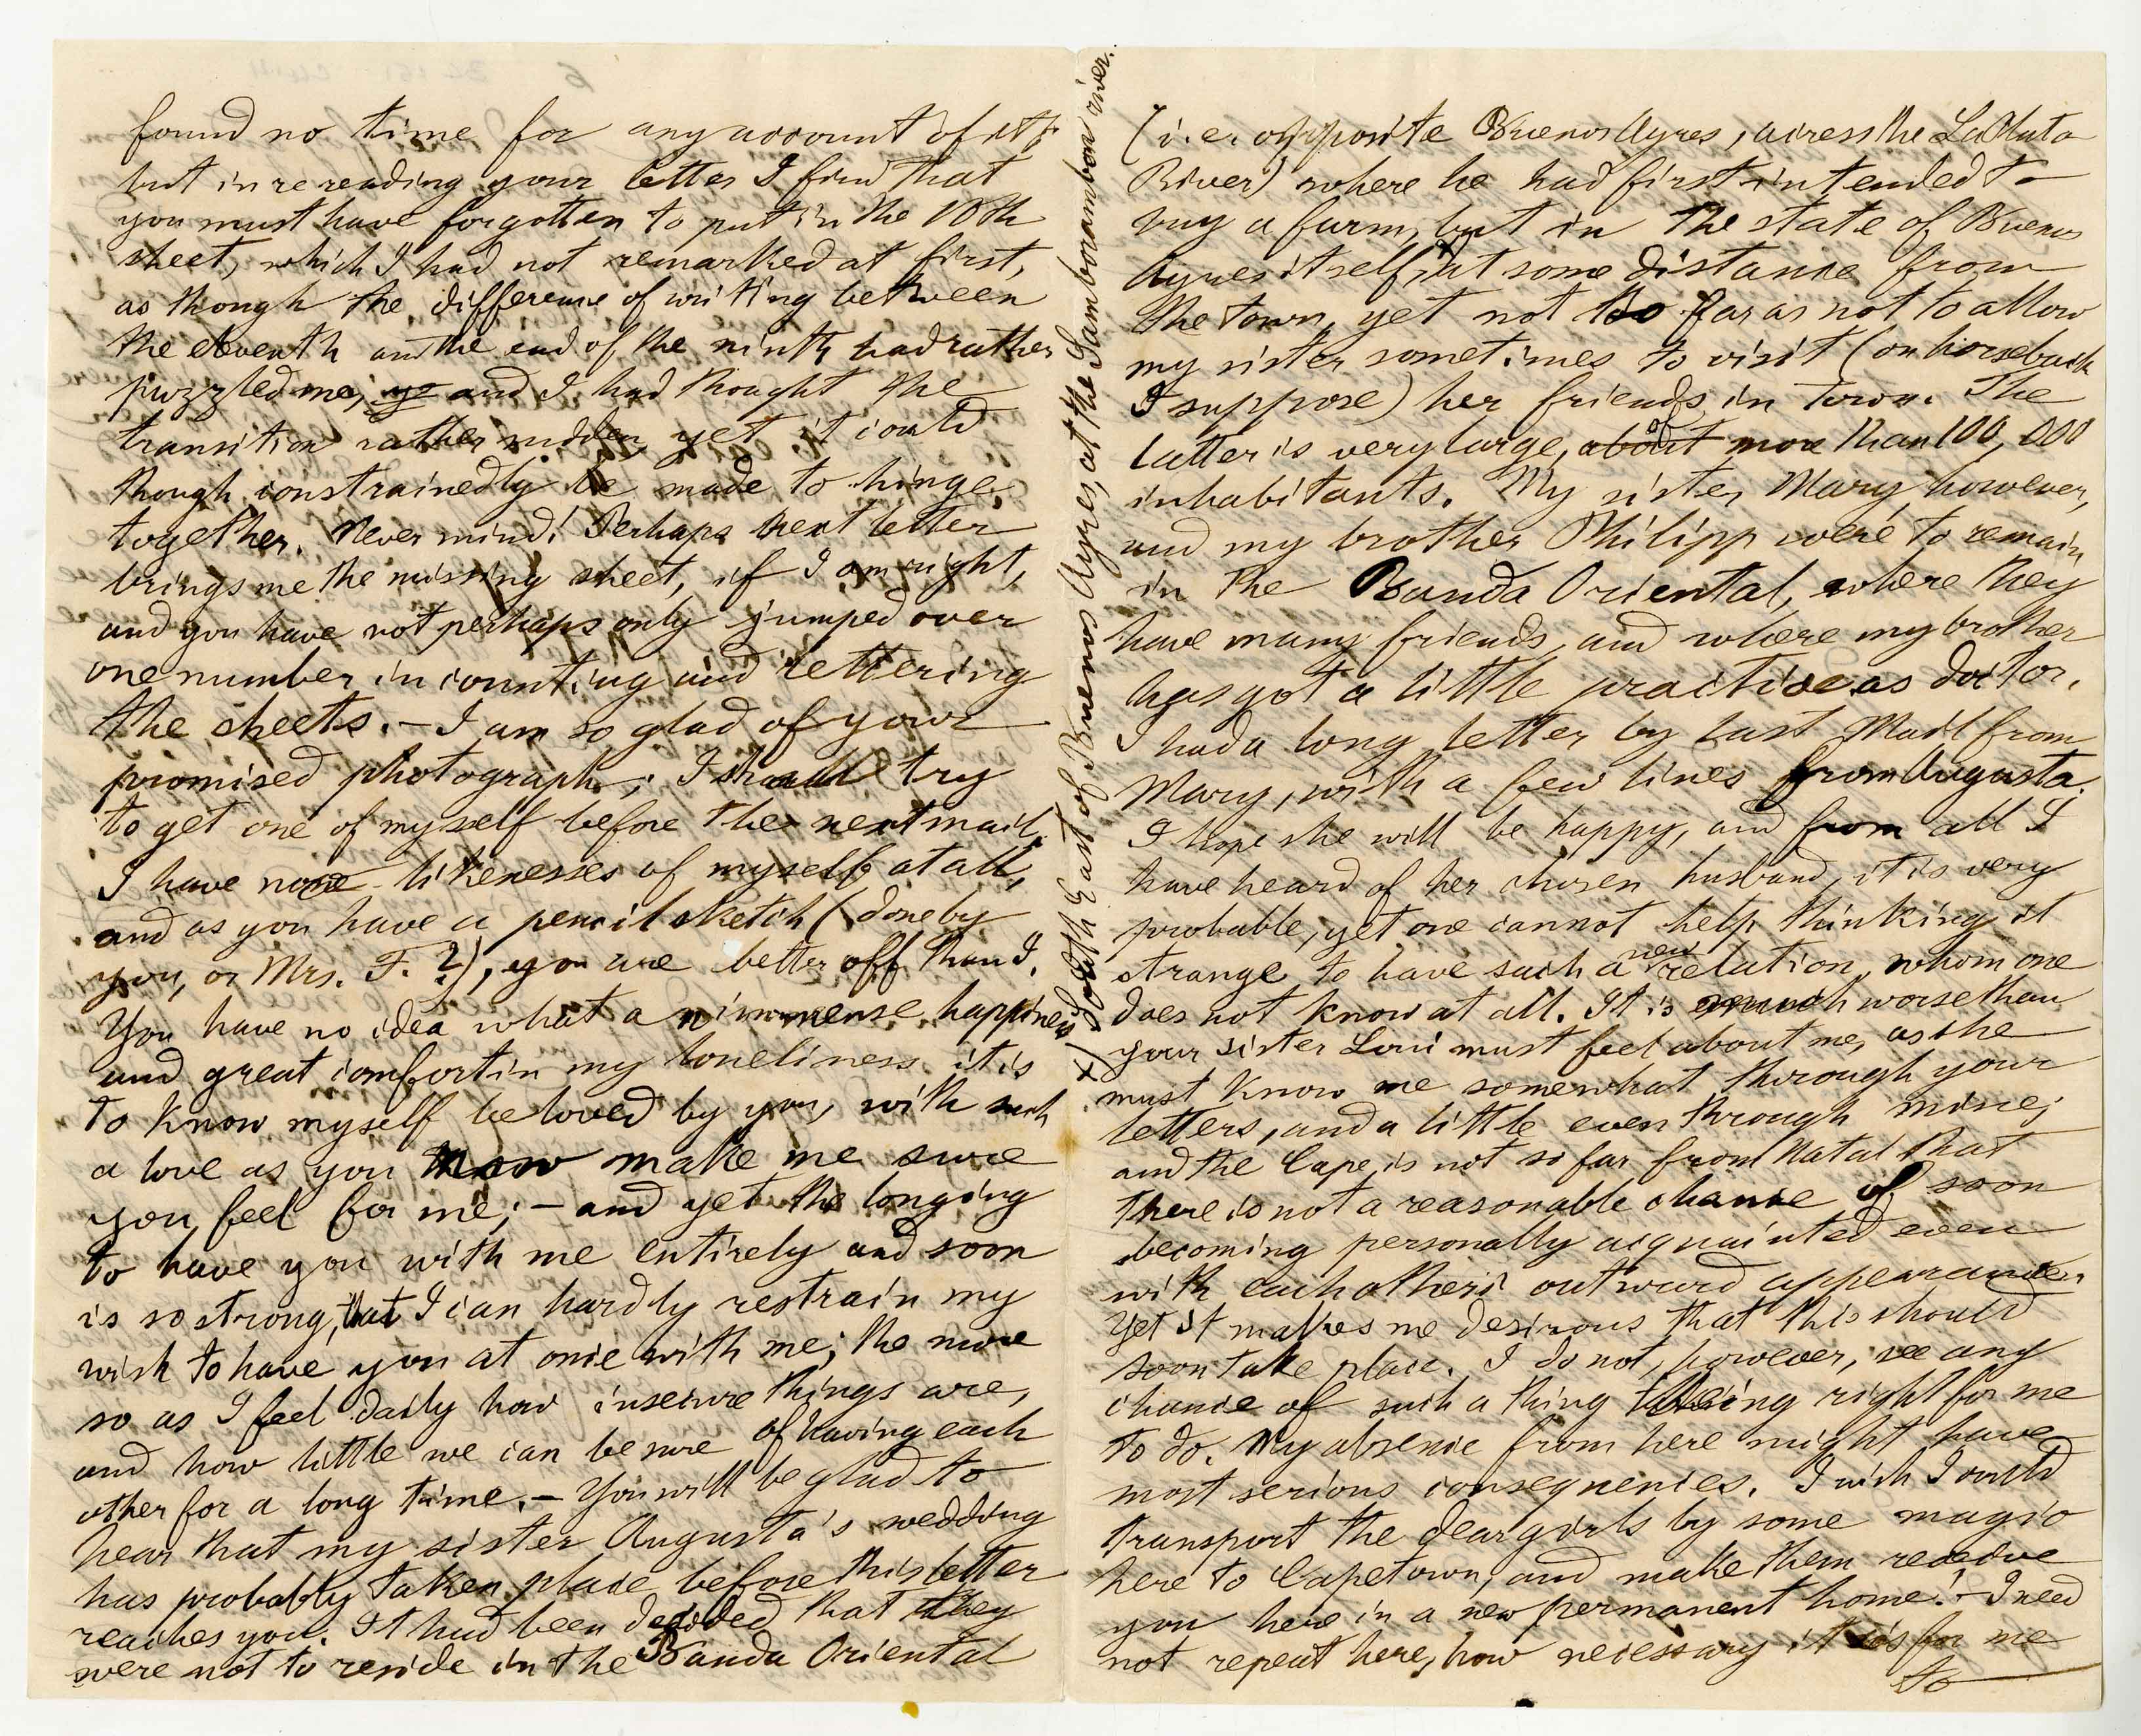 found no time for any account of it;
but in rereading your letter I find that
you must have forgotten to put in the 10th
sheet, which I had not remarked at first,
as though the difference of writing between
the eleventh and the end of the ninth had rather
puzzled me, and I had thought the
transition rather sudden, yet it could
though constrainedly be made to hinge
together. Never mind! Perhaps next letter
brings me the missing sheet, if I am right,
and you have not perhaps only jumped over
one number in counting and lettering
the sheets. – I am so glad of your
promised photograph; I shall try
to get one of myself before the next mail.
I have none likenesses of myself at all,
and as you have a pencil sketch (done by
you, or Mrs. F. ?), you are better off than I.
You have no idea what an immense happiness
and great comfort in my loneliness it is
to know myself beloved by you, with such
a love as you now make me sure
you feel for me; – and yet the longing
to have you with me entirely and soon
is so strong, that I can hardly restrain my
wish to have you at once with me; the more
so as I feel daily how insecure things are,
and how little we can be sure of having each
other for a long time. – You will be glad to
hear that my sister Augusta's wedding
has probably taken place before this letter
reaches you. It had been decided that they
were not to reside in the Banda Oriental
(i.e. opposite Buenos Ayres, across the La Plata
River) where he had first intended to
buy a farm, but in the state of Buenos
Ayres itself, at some distance from
the town, yet not too far as not to allow
my sister sometimes to visit (on horseback
I suppose) her friends in town. The
latter is very large, about of more than 100,000
inhabitants. My sister Mary, however,
and my brother Philipp were to remain
in the Banda Oriental, where they
have many friends, and where my brother
has got a little practise as doctor.
I had a long letter by last Mail from
Mary, with a few lines from Augusta.
I hope she will be happy, and from all I
have heard of her chosen husband, it is very
probable, yet one cannot help thinking it
strange to have such a new relation, whom one
does not know at all. It is much worse than
your sister Loui must feel about me, as she
must know me somewhat through your
letters, and a little even through mine;
and the Cape is not so far from Natal that
there is not a reasonable chance of soon
becoming personally acquainted even
with each other's outward appearance.
Yet it makes me desirous that this should
soon take place. I do not, however, see any
chance of such a thing being right for me
to do. My absence from here might have
most serious consequences. I wish I could
transport the dear girls by some magic
here to Capetown, and make them receive
you here in a new permanent home! – I need
not repeat here, how necessary it is for me
to
x) South East of Buenos Ayres, at the Samborambon river.